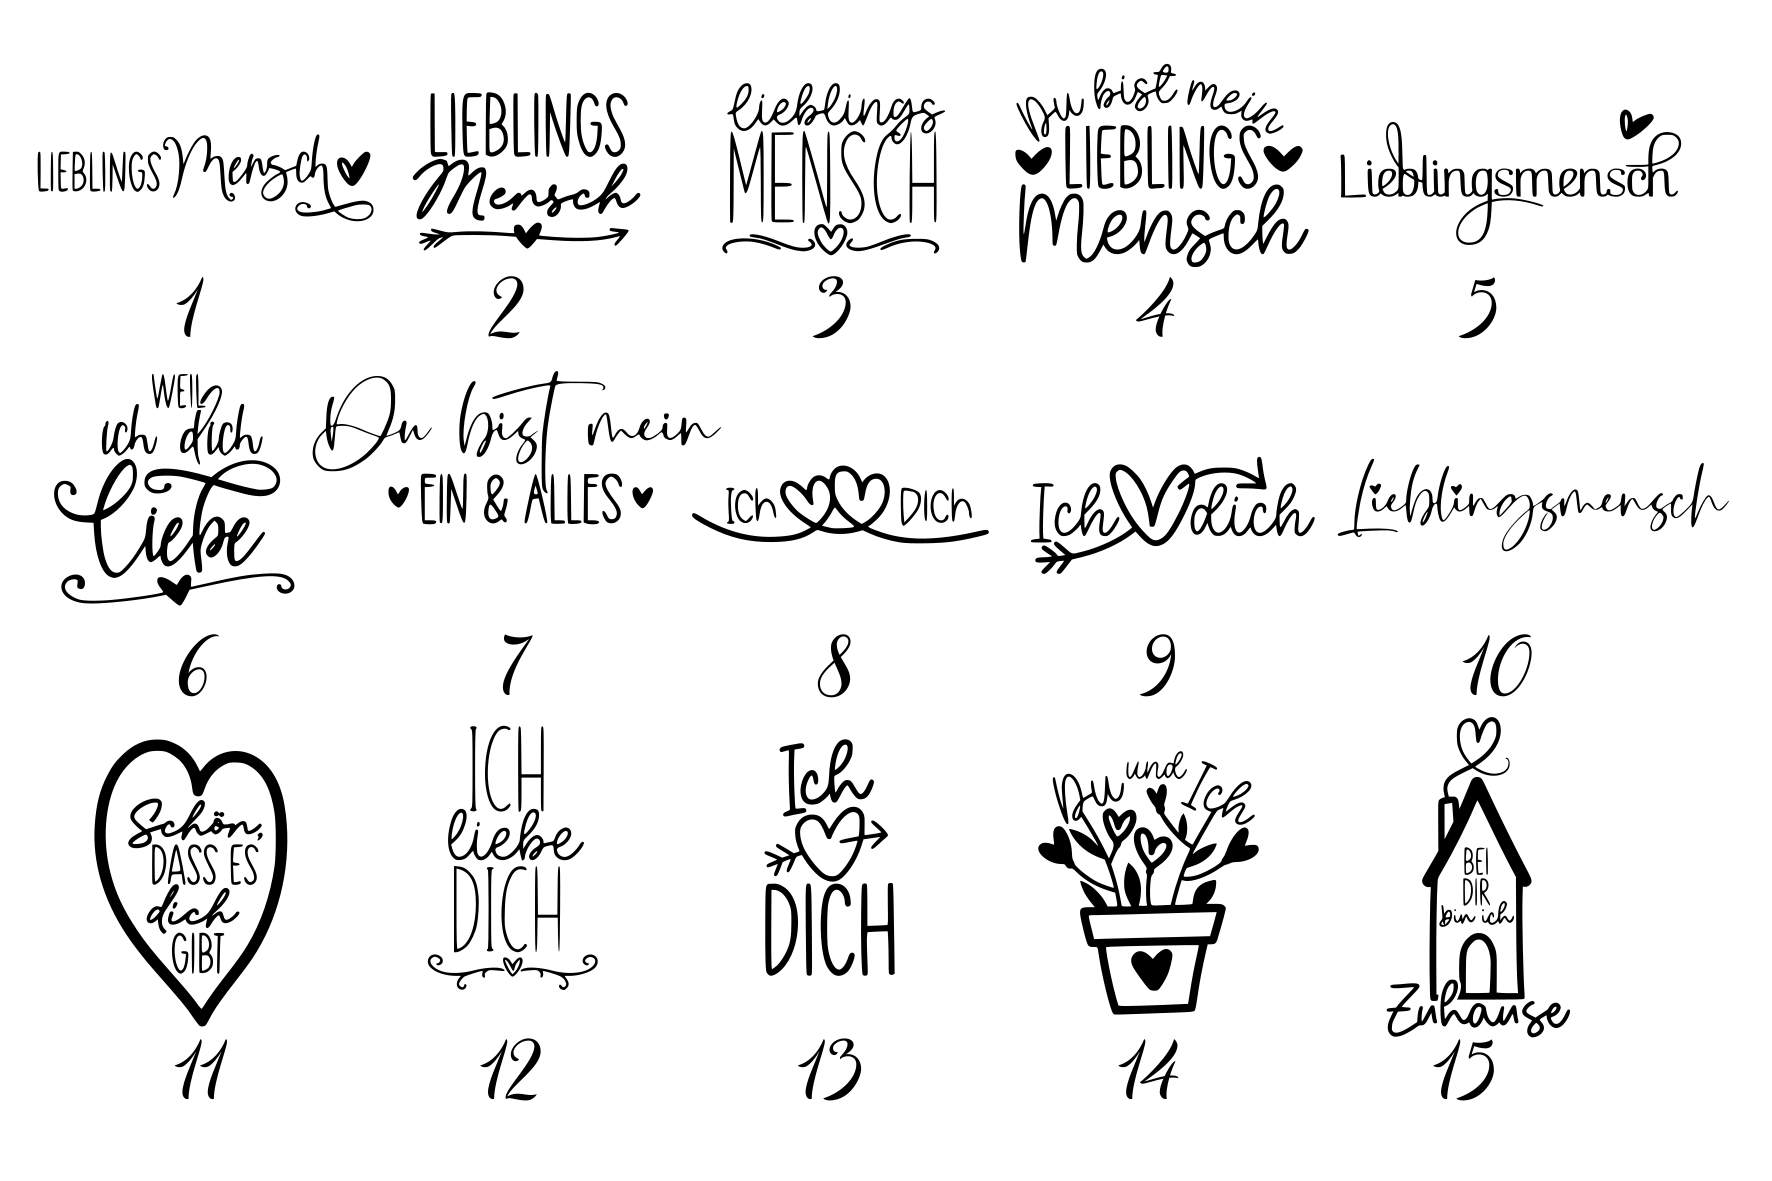 LIEBLINGS Mensch
1
LIEBLINGS
Mensch
2
lieblings
MENSCH
3
Du bist mein
LIEBLINGS
Mensch
4
Lieblingsmensch
5
WEIL
ich dich
Liebe
6
Du bist mein
EIN & ALLES
7
Ich Dich
8
Ich dich
9
Lieblingsmensch
10
Schön,
DASS ES
dich
GIBT
11
ICH
liebe
DICH
12
Ich
DICH
13
Du und Ich
14
BEI
DIR
bin ich
Zuhause
15